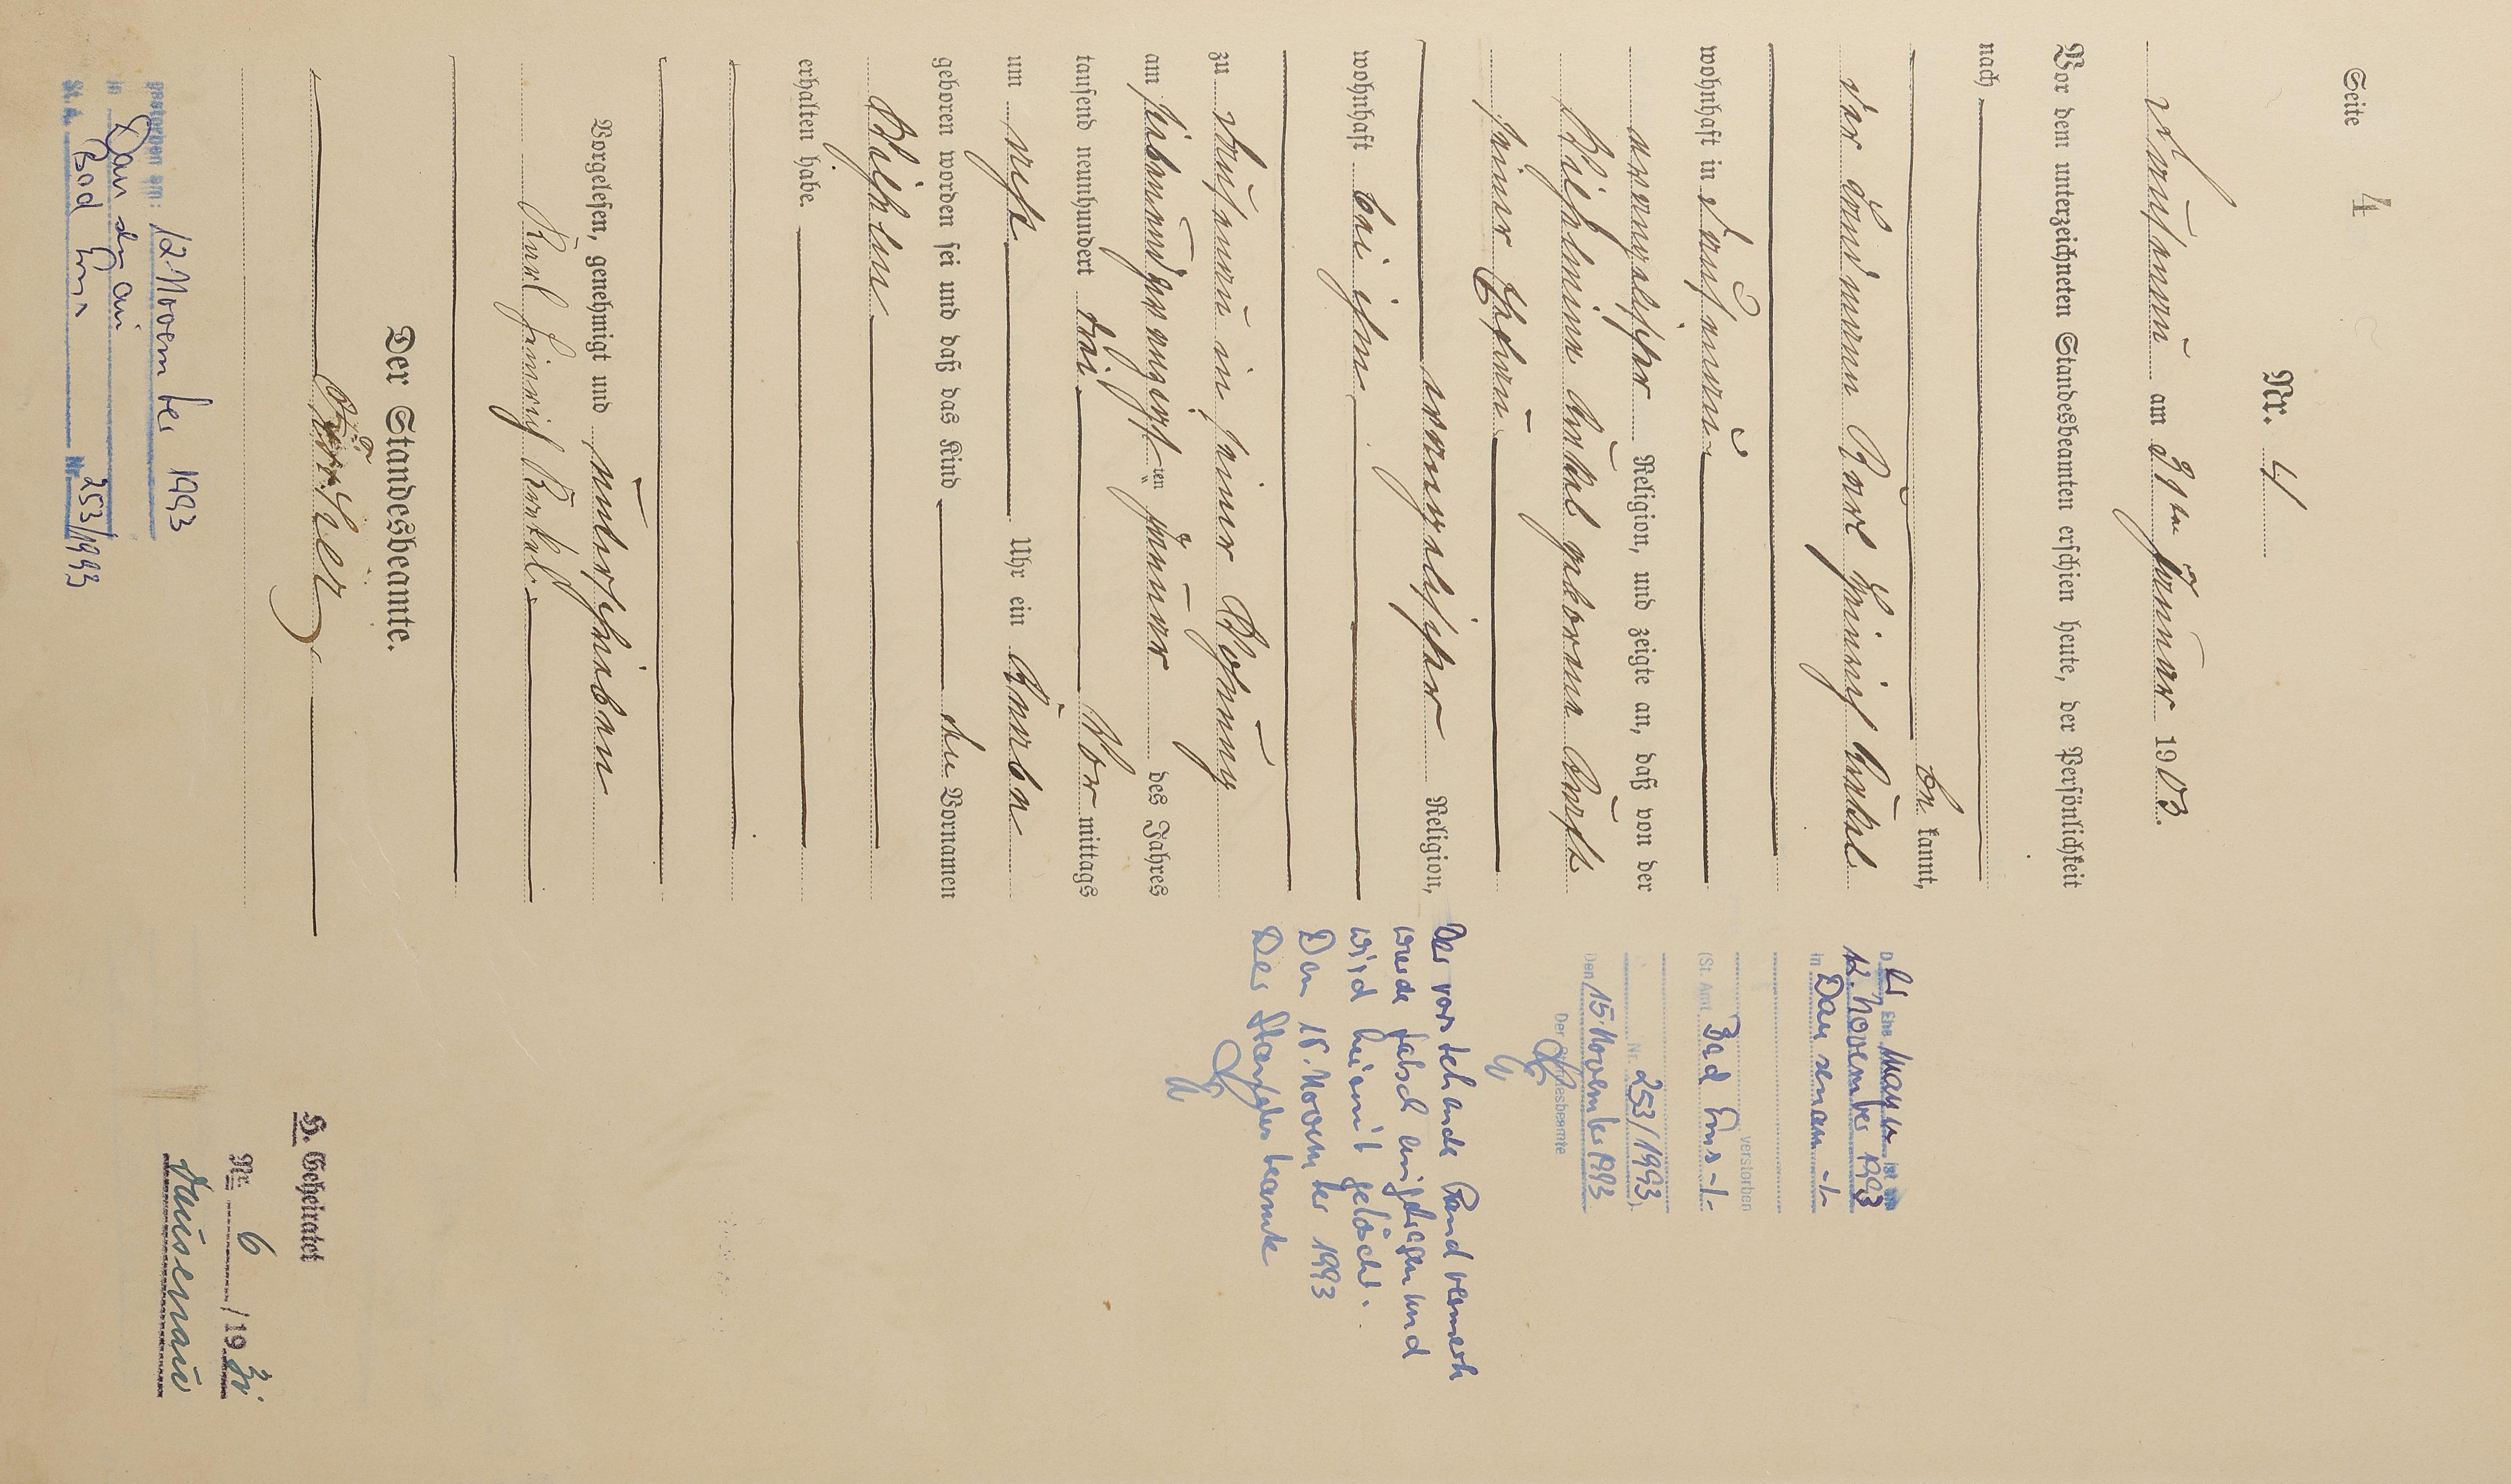 Seite 4
Nr. 4
Dausenau am 31ten Januar 1903.
Vor dem unterzeichneten Standesbeamten erschien heute, der Persönlichkeit
nach
be kannt,
der Landmann Karl Heinrich Kunkel
wohnhaft in Dausenau
evangelischer Religion, und zeigte an, daß von der
Wilhelmine Kunkel geborene
seiner Ehefrau
evangelischer Religion,
wohnhaft bei ihm
zu Dausenau in seiner Wohnung
am siebenundzwanzigsten Januar des Jahres
tausend neunhundert drei Vor mittags
um Uhr ein Knabe
geboren worden sei und daß das Kind den Vornamen
Wilhelm
erhalten habe.
Vorgelesen, genehmigt und unterschrieben
Karl Heinrich Kunkel.
Der Standesbeamte.
gestorben am: 12. November 1993
in Dausenau
St. A. Bad Ems Nr. 253/1993
Der Ehemann ist am
12. November 1993
in Dausenau -/-
verstorben
(St. Amt Bad Ems -/-
Nr. 253/1993)
Den 15. November 1993
Der Standesbeamte
Der vorstehende Randvermerk
wurde falsch eingetragen und
wird hiermit gelöscht.
Den 15. November 1993
Der Standesbeamte
H. Geheiratet
Nr. 6 /19
Dausenau